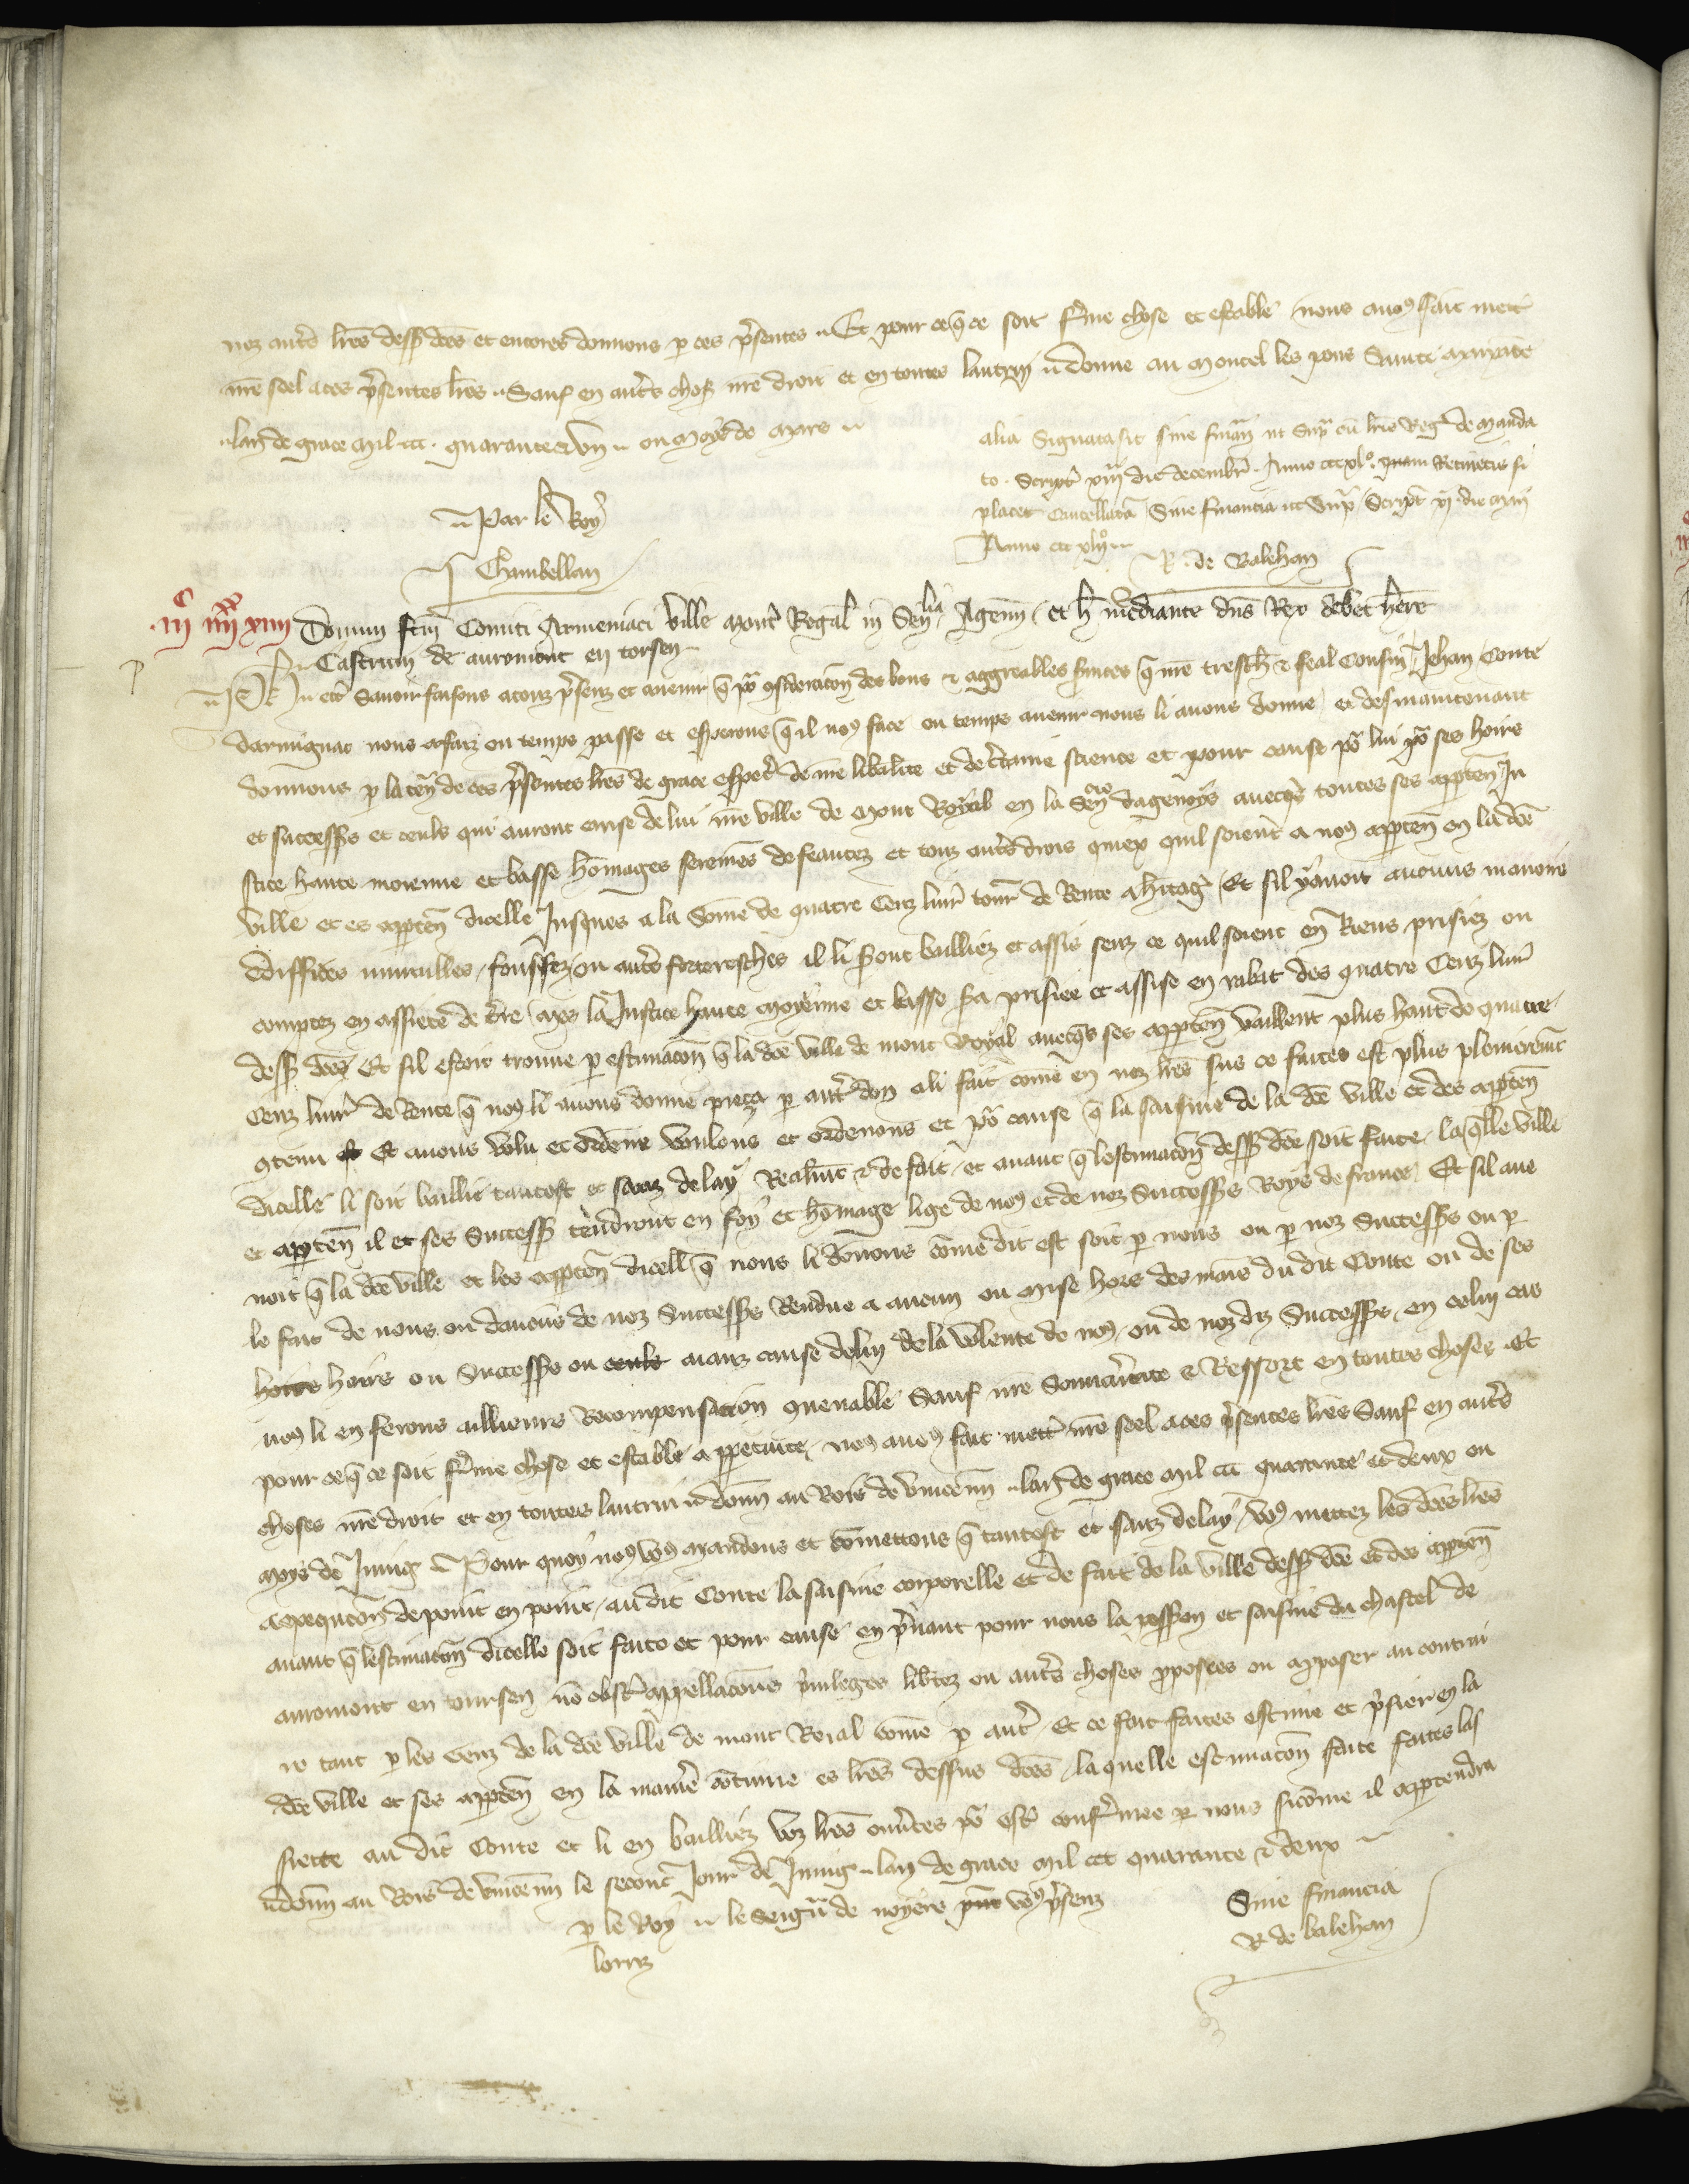 nez autres lres dessus dces et encores donnons p ces presentes Et pour ce que ce soit ferme chose et estable nous avons fait mett
nre seel a ces presentes lres Sauf en autres choses nre droit et en toutes lautruy donne au Moncel les pons Sainte Maixance
lan de grace mil ccc quarante et un ou moys de Mars
alia Signata sic sine financia ut supra cum lris Reg de manda
to Script xiij die decembr Anno ccc xlo quam Retinetis si
placet Cancellatam Sine financia ut Supra Script vj die maii
Anno ccc xlijo
Par le Roy
Chambellan
R de Balehan
iijc iiijxx xiiij Donum fcm Comiti Armeniaci ville Mont Regal in Senlia Agenn et h mediante dns Rex debet here
Castrum de auromont en torsen
Ph &c Savoir faisons a touz presenz et avenir que pour consideracion des bons & aggreables services que nre tresch & feal Cousin Jehan Conte
darmignac nous a faiz ou temps passe et esperons que il nous face ou temps avenir nous li avons donne et des maintenant
donnons p la ten de ces presentes lres de grace especl de nre liberalite et de certaine science et pour cause pour lui pour ses hoirs
et successeurs et ceuls qui auront cause de lui nre ville de Mont Royal en la Sen dagenoys avecques toutes ses apparten Ju
stice haute moienne et basse homages seremens de feautez et touz autres drois quiex quil soient a nous apparten en la dce
ville et es apparten dicelle Jusques a la Some de quatre Cenz livr tourn de Rente a heritage Et sil y avoit aucuns manoirs
ediffices murailles foussez ou autres forteresches il li seront bailliez et assis senz ce quil soient en Riens prisiez ou
comptez en assiete de terre mes la Justice haute moyenne et basse sera prisiee et assise en rabat des quatre Cenz livr
dessus dces Et sil estoit trouve p estimacion que la dce ville de mont Royal avecques ses apparten vaillent plus haut de quatre
Cenz livr de Rente que nous li avons donne pieca p autre don a li fait come en noz lres sus ce faites est plus plenierement
contenu Et avons volu et ordene voulons et ordenons et pour cause que la saisine de la dce ville et des apparten
dicelle li soit baillie tantost et sanz delay Realment & de fait et avant que lestimacion dessus dce soit faite la quelle ville
et apparten il et ses Successeurs tendront en foy et homage lige de nous et de noz Successeurs Roys de france Et sil ave
noit que la dce ville et les apparten dicelle que nous li donons come dit est soit p nous ou p noz Successeurs ou p
le fait de nous ou daucuns de noz Successeurs Rendue a aucun ou mise hors des mains du dit Conte ou de ses
hoirs hoirs ou Successeurs ou ceulz aianz cause de luy de la volente de nous ou de noz diz Successeurs en celuy cas
nous li en ferons aillieurs Recompensacion convenable Sauf nre Souverainete & Ressort en toutes choses Et
pour ce que ce soit ferme chose et estable a perpetuite nous avons fait mettre nre seel a ces presentes lres Sauf en autres
choses nre droit et en toutes lautrui donn au Bois de vincenn lan de grace mil ccc quarante et deux ou
moys de Juing Pour quoy nous vous mandons et comettons que tantost et sanz delay vous mettez les dces lres
a execucion de point en point au dit Conte la saisine corporelle et de fait de la ville dessus dce et des apparten
avant que lestimacion dicelle soit faite et pour cause en prenant pour nous la possession et saisine du chastel de
auromont en toursen non obst appellacions privileges libertez ou autres choses proposees ou a proposer au contrai
re tant p les Genz de la dce ville de mont Roial come p autre Et ce fait faites estimer et prisier en la
dce ville et ses apparten en la maniere contenue es lres dessus dces la quelle estimacion faite faites las
siette au dit Conte et li en bailliez voz lres ouvertes pour estre confermee p nous sicome il appartendra
donn au Bois de vincenn le secont Jour de Juing lan de grace mil ccc quarante & deux
p le Roy le seigneur de noyers vous presenz
lorriz
Sine financia
R de balehan